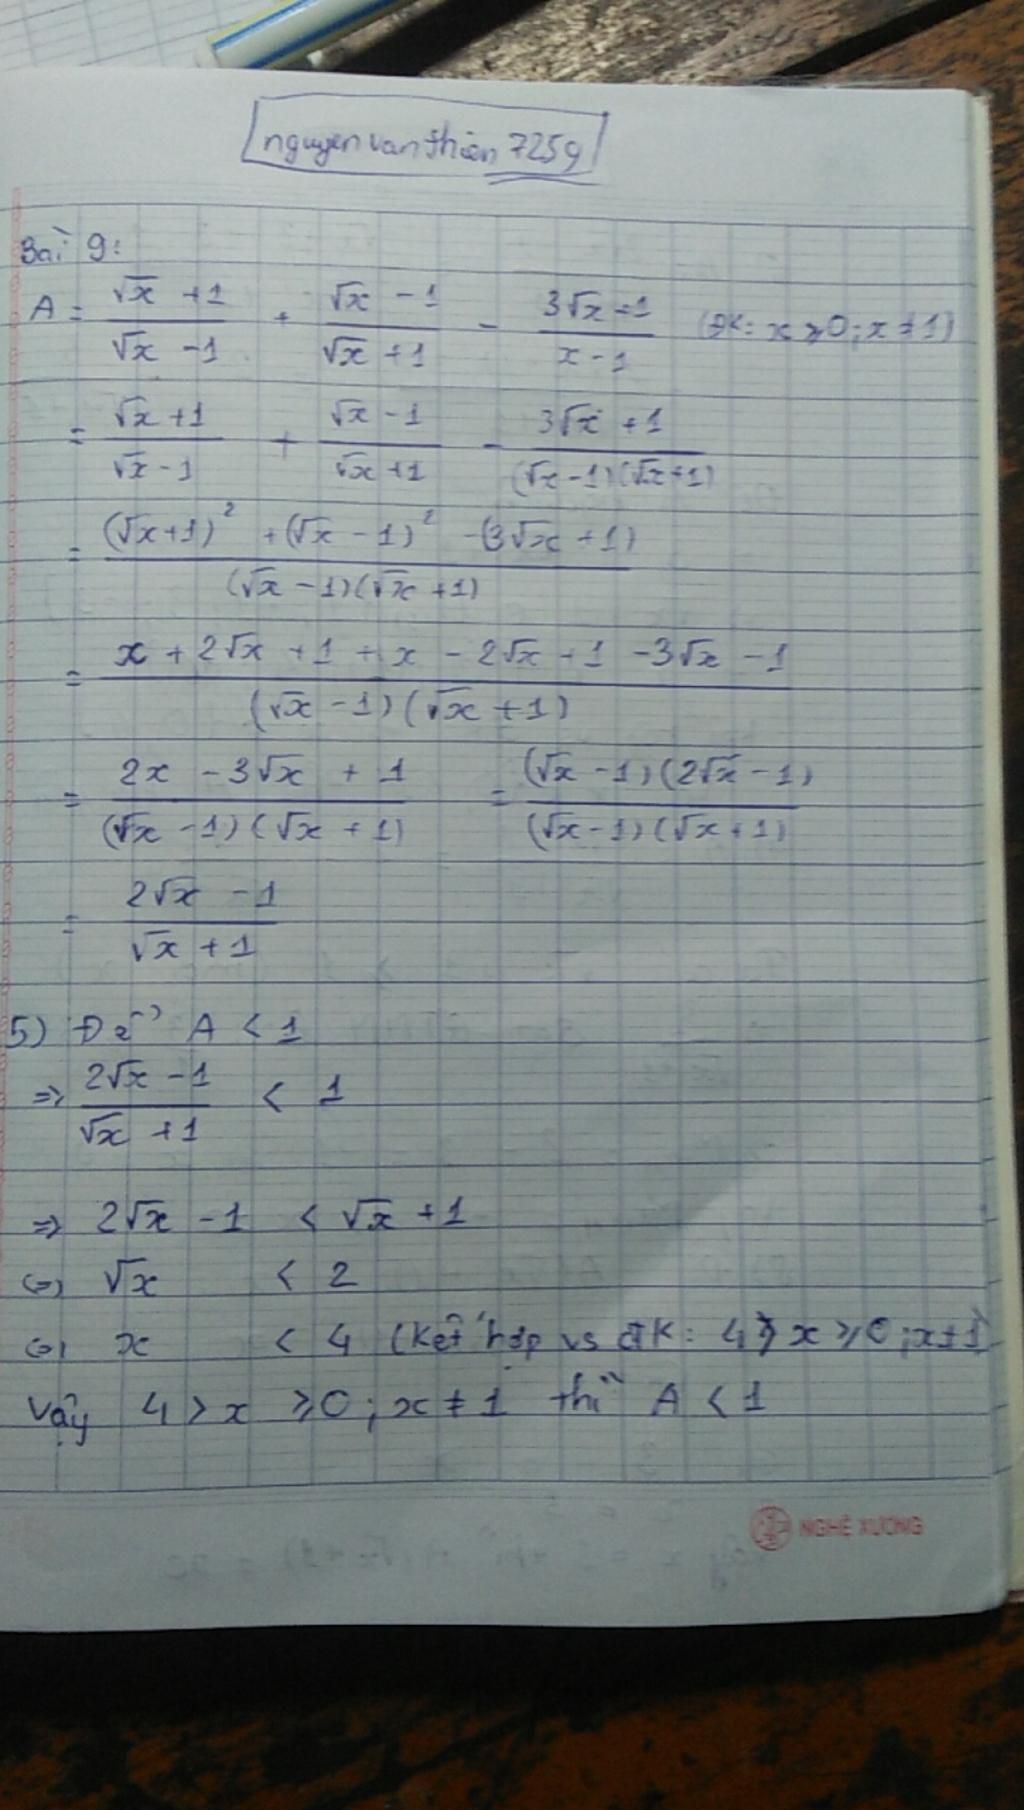 nguyenvanthiên 7259
Bài 9:
A = (√x + 1)/(√x - 1) + (√x - 1)/(√x + 1) - (3√x + 1)/(x - 1) (ĐK: x ≥ 0; x ≠ 1)
= (√x + 1)/(√x - 1) + (√x - 1)/(√x + 1) - (3√x + 1)/((√x - 1)(√x + 1))
= ((√x + 1)² + (√x - 1)² - (3√x + 1))/((√x - 1)(√x + 1))
= (x + 2√x + 1 + x - 2√x + 1 - 3√x - 1)/((√x - 1)(√x + 1))
= (2x - 3√x + 1)/((√x - 1)(√x + 1)) = ((√x - 1)(2√x - 1))/((√x - 1)(√x + 1))
= (2√x - 1)/(√x + 1)
5) Để A < 1
=> (2√x - 1)/(√x + 1) < 1
=> 2√x - 1 < √x + 1
<=> √x < 2
<=> x < 4 (Kết hợp vs đK: 4 > x ≥ 0; x ≠ 1)
Vậy 4 > x ≥ 0; x ≠ 1 thì A < 1
NGHÊ XƯƠNG